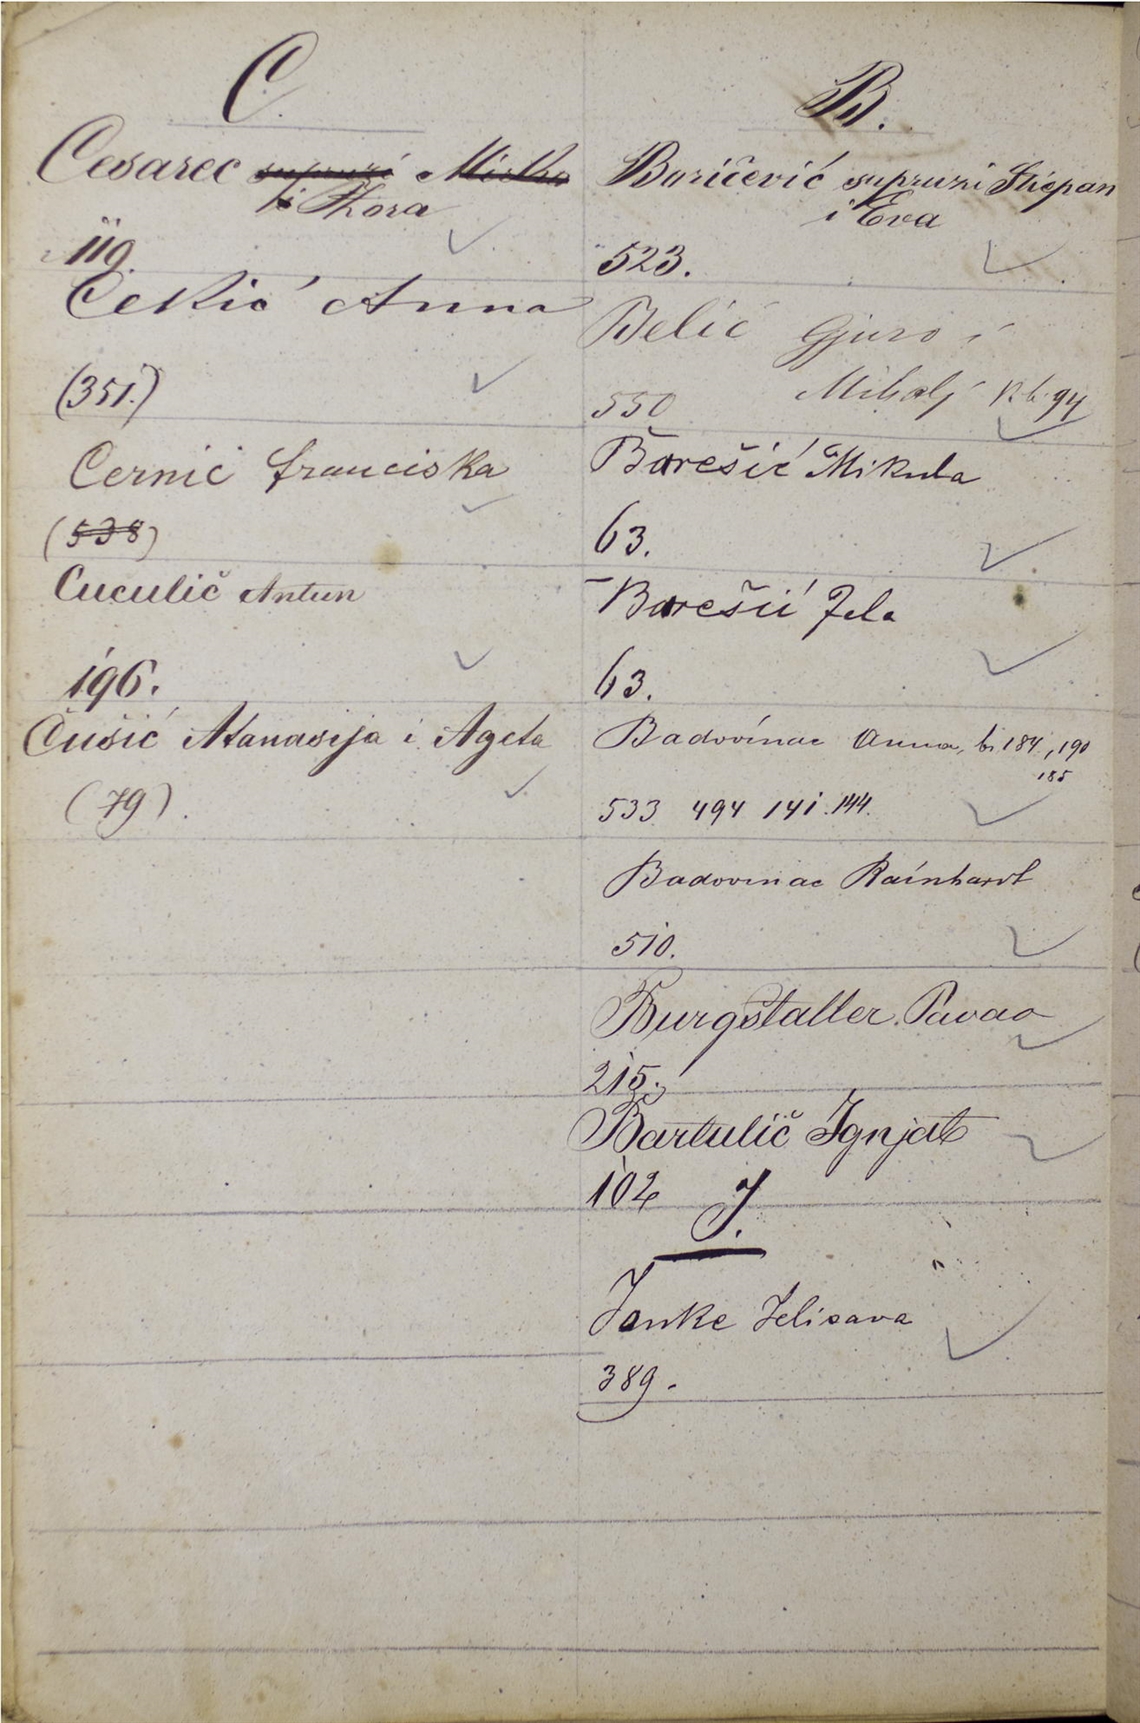 C.
Cesarec supruzi Mirko
i Thora
119.
Cekić Anna
(351.)
Cernić Franciska
(538)
Cuculič Antun
196.
Čušić Atanasija i Ageta
(79).
B.
Boričević supruzi Stiepan
i Eva
523.
Belić Gjuro i
Mihalj k.b. 94
550
Barešić Mikula
63.
Barešić Jela
63.
Badovinac Anna, br 184, 190
185
533 494 141. 144.
Badovinac Rainhardt
510.
Burgstaller Pavao
215.
Bartulič Ignjat
102
J.
Janke Jelisava
389.